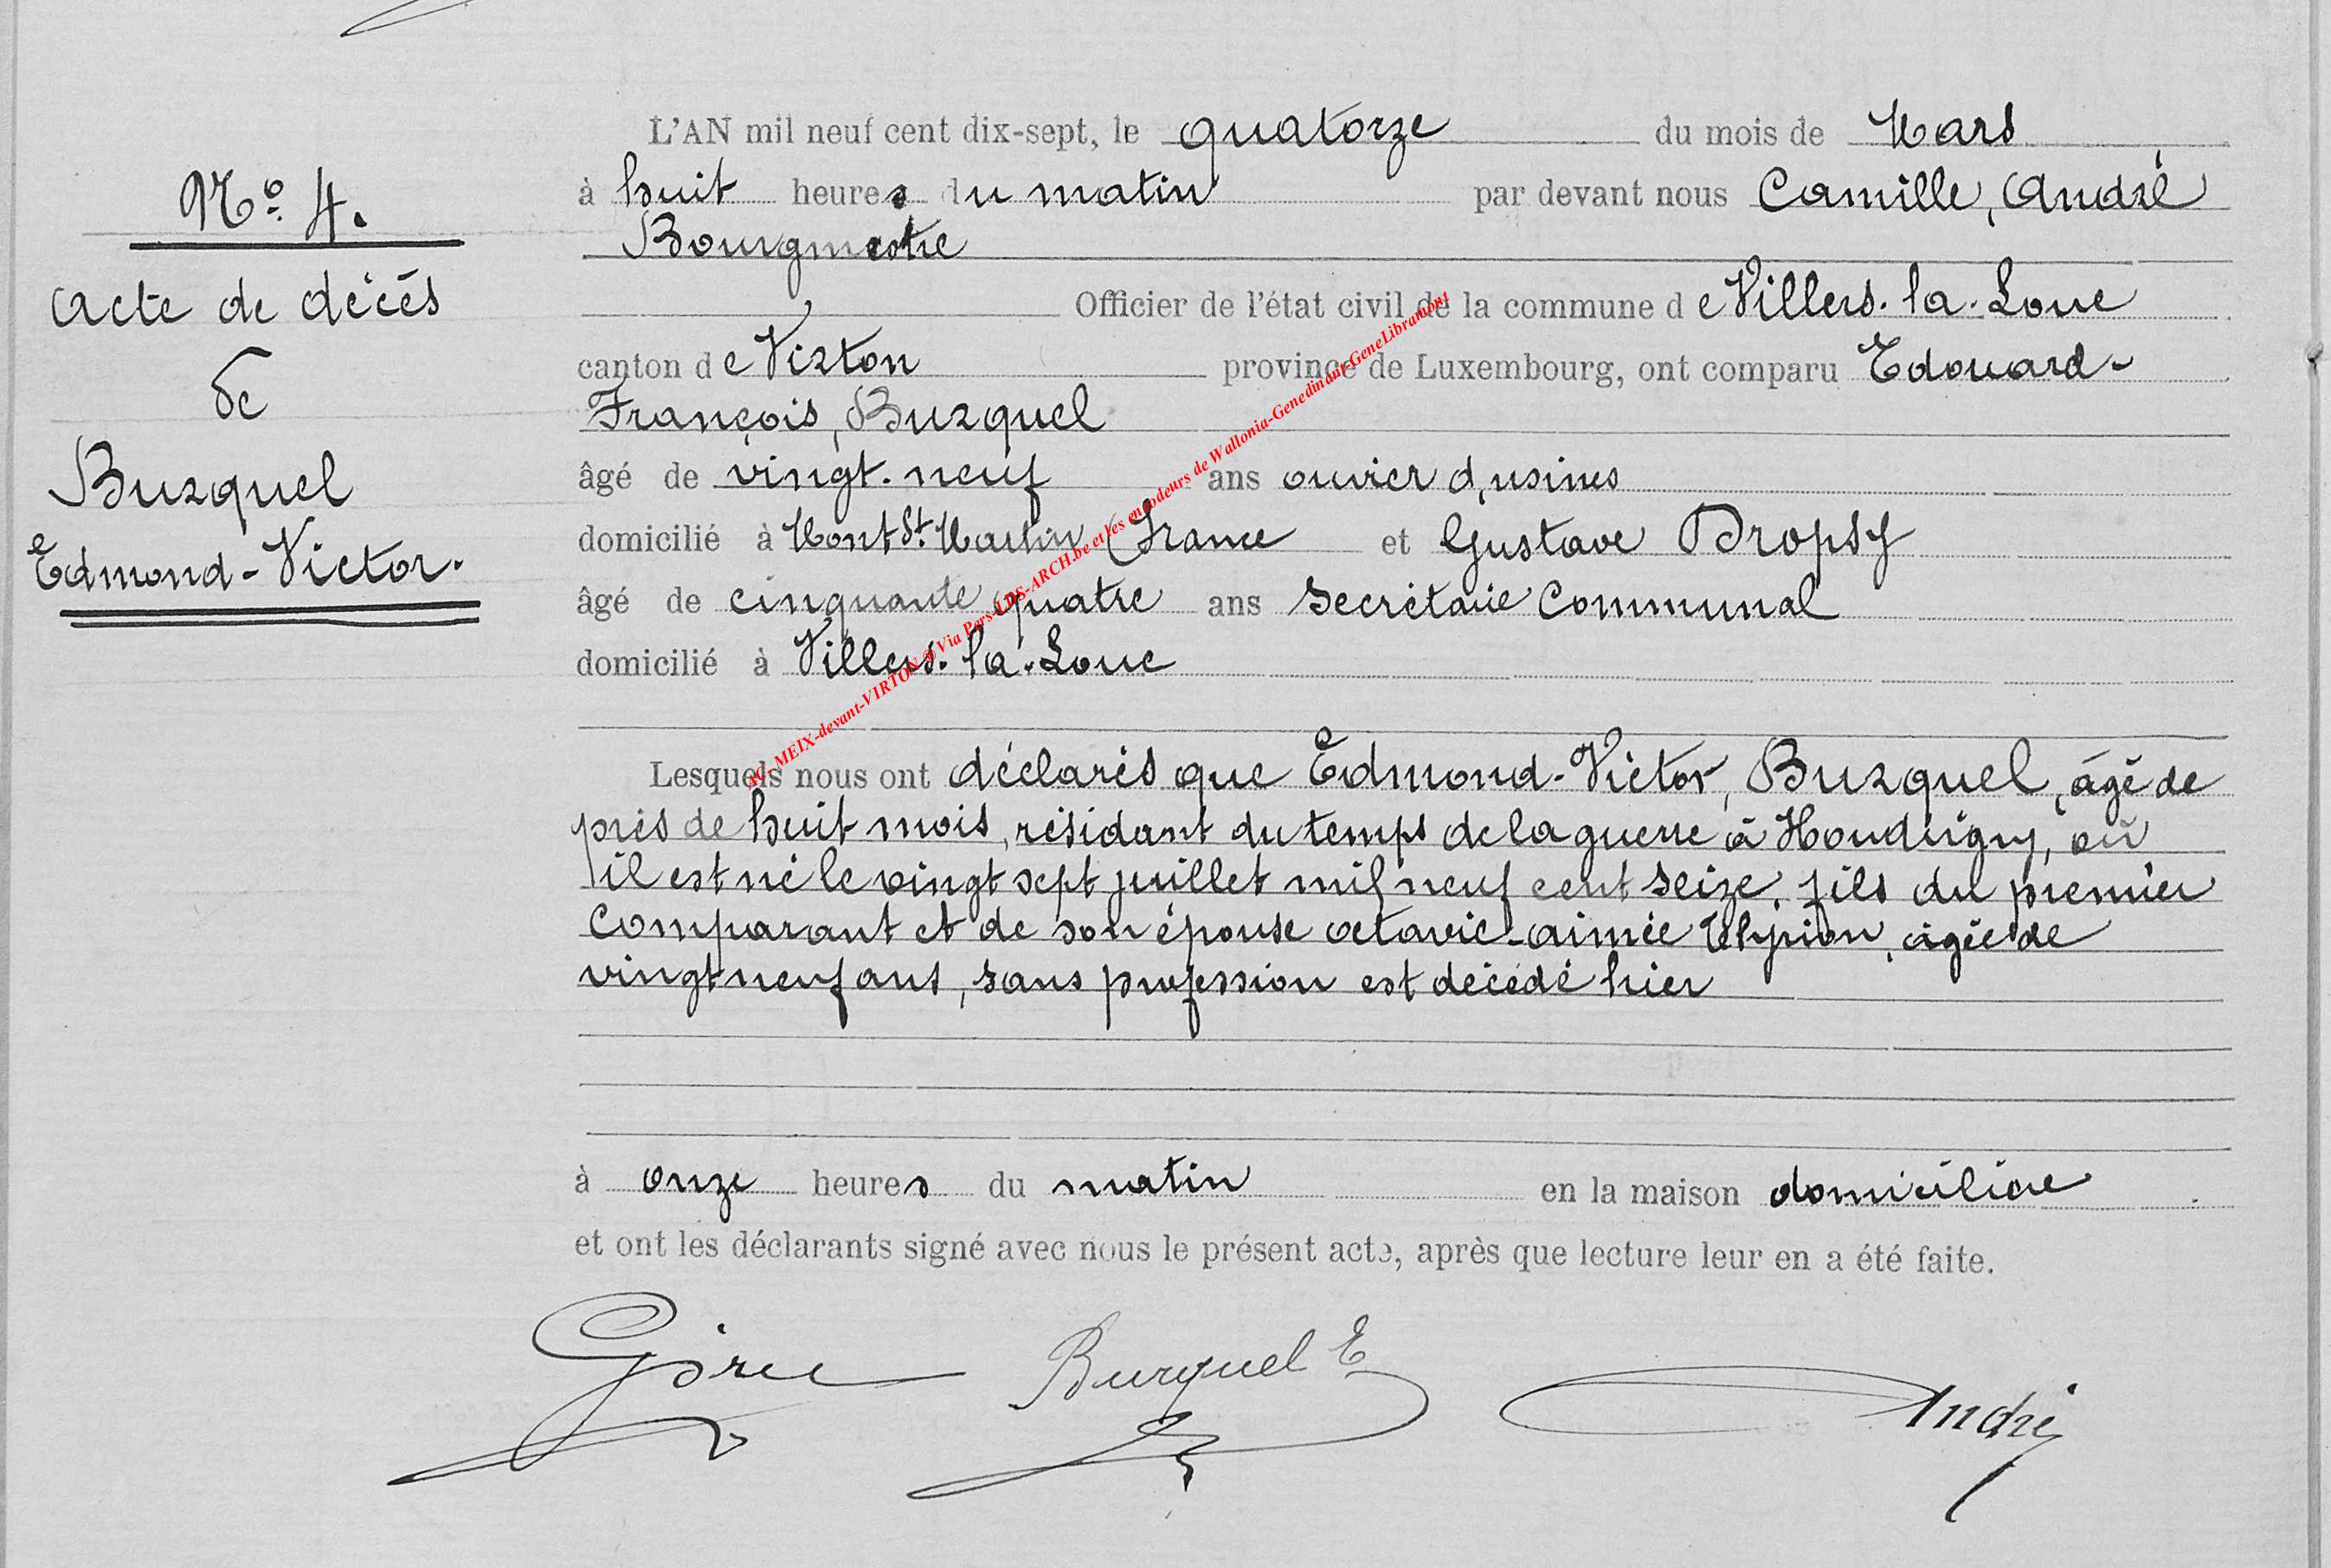 L'AN mil neuf cent dix-sept, le quatorze du mois de Mars
à huit heures du matin par devant nous Camille, André
Bourgmestre
Officier de l'état civil de la commune de Villers-la-Loue
canton de Virton province de Luxembourg, ont comparu Edouard-
François, Burquel
âgé de vingt-neuf ans ouvrier d'usines
domicilié à Mont St. Martin (France et Gustave Dropsy
âgé de cinquante quatre ans secrétaire communal
domicilié à Villers-la-Loue
Lesquels nous ont déclarés que Edmond-Victor, Burquel, âgé de
près de huit mois, résidant du temps de la guerre à Houdrigny, où
il est né le vingt sept juillet mil neuf cent seize, fils du premier
comparant et de son épouse Octavie-Aimée âgée de
vingt neuf ans, sans profession est décédé hier
à onze heures du matin en la maison domiciliaire
et ont les déclarants signé avec nous le présent acte, après que lecture leur en a été faite.
Burquel E
André
No. 4.
Acte de décès
de
Burquel
Edmond-Victor.
AC-MEIX-devant-VIRTON @ Via Pers-LDS-ARCH.be et les encodeurs de Wallonia-Genedinant-GeneLibramont